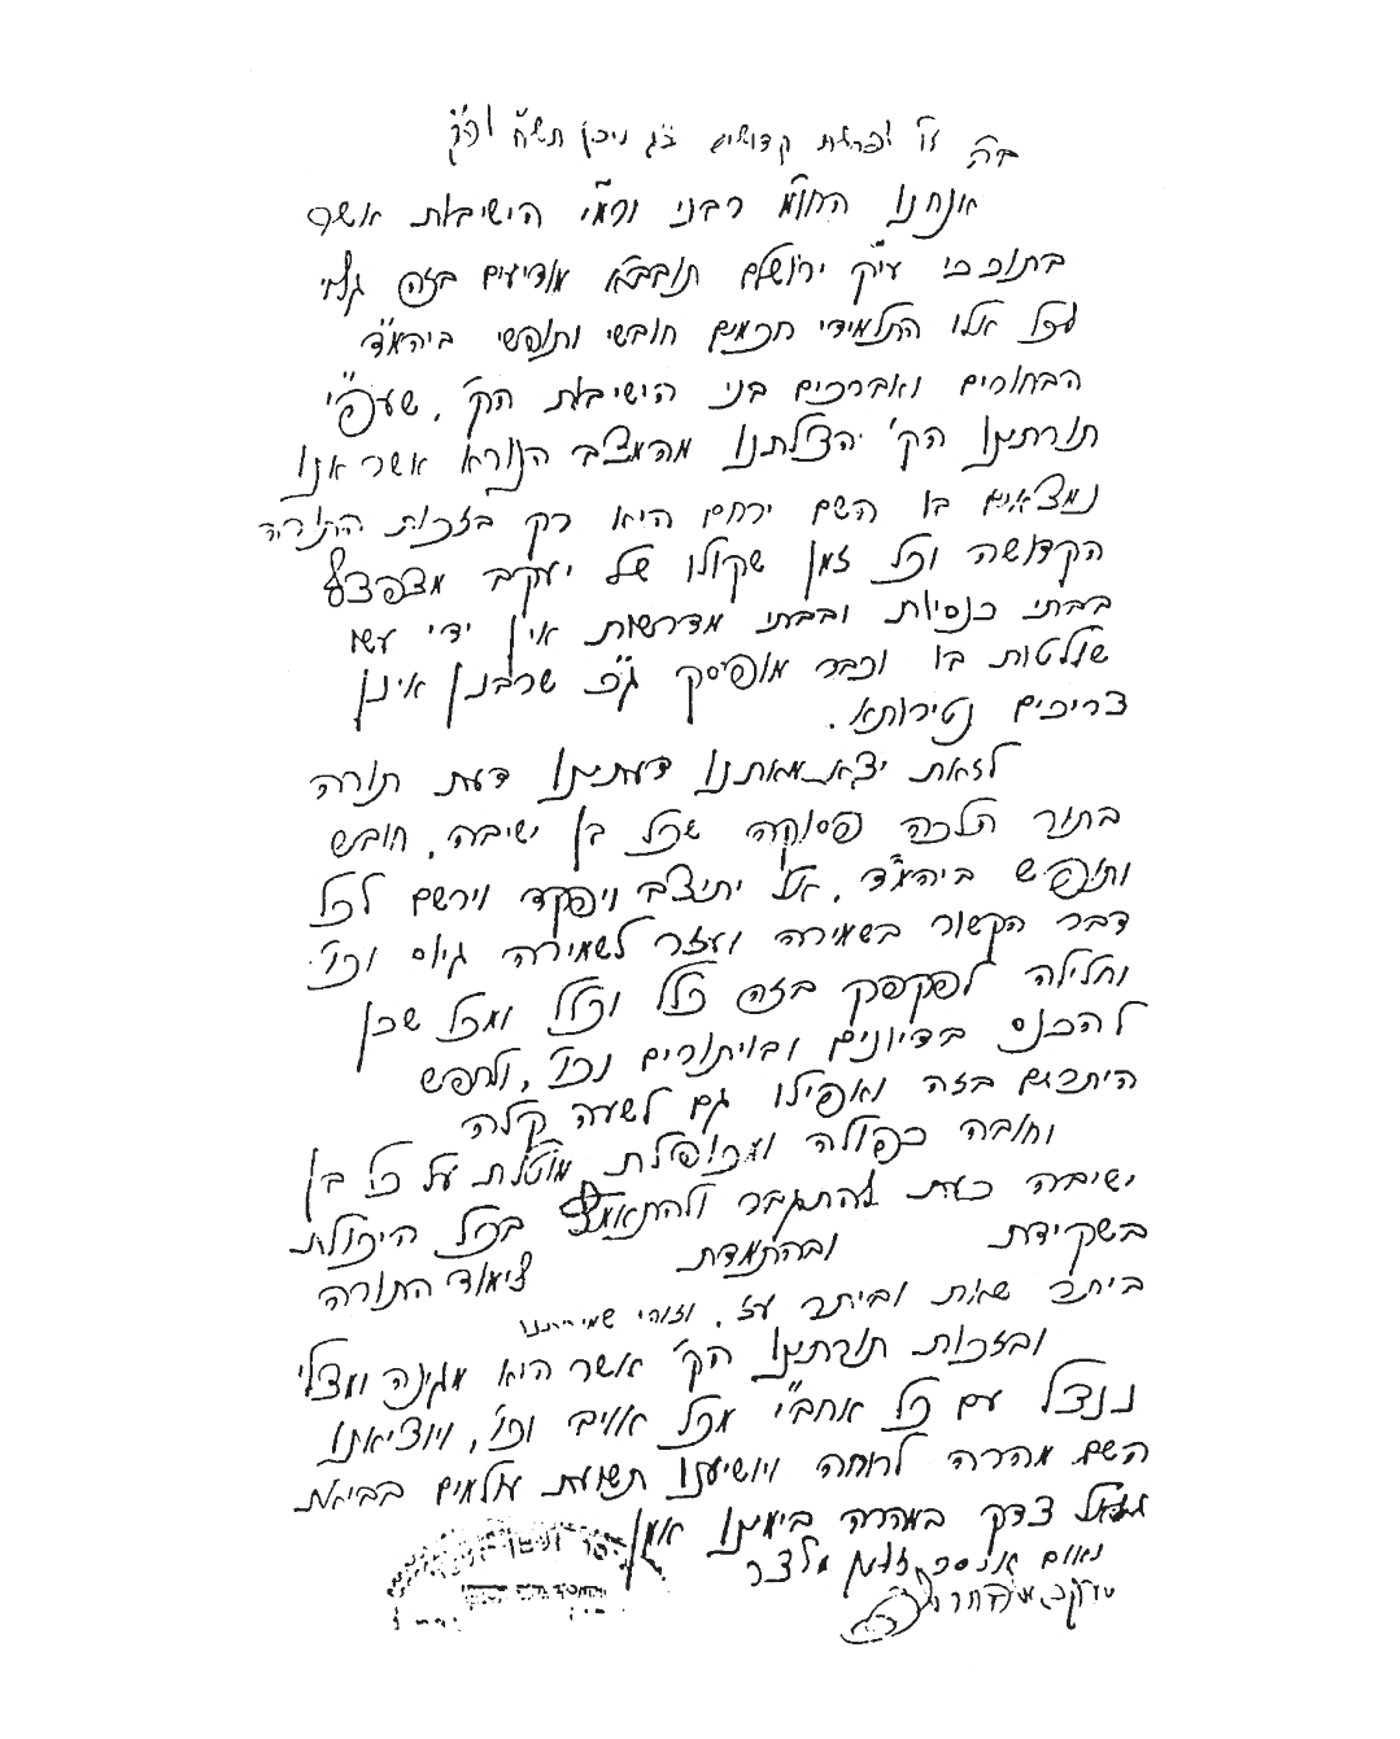 ב״ה יו׳ לפרשת קדושים כ״ג ניסן תש״ח לפ״ק
אנחנו החו״מ רבני ור״מי הישיבות אשר
בתוככי עיה״ק ירושלם תובב״א מודיעים בזה גלוי
לכל אלו התלמידי חכמים חובשי ותופשי ביהמ״ד
הבחורים ואברכים בני הישיבות הק׳, שעפ״י
תורתינו הק׳ הצלתנו מהמצב הנורא אשר אנו
נמצאים בו השם ירחם היא רק בזכות התורה
הקדושה וכל זמן שקולו של יעקב מצפצף
בבתי כנסיות ובבתי מדרשות אין ידי עשו
שולטות בו וכבר מופיסק ג״כ שרבנן אינן
צריכים נטירותא.
לזאת יצא מאתנו דעתינו דעת תורה
בתור הלכה פסוקה שכל בן ישיבה, חובש
ותופש ביהמ״ד, אל יתיצב ויפקד וירשם לכל
דבר הקשור בשמירה ועזר לשמירה גיוס וכו׳
וחלילה לפקפק בזה כלל וכלל ומכל שכן
להכנס בדיונים ובויתורים וכו׳, ולחפש
היתרים בזה ואפילו גם לשעה קלה
וחובה כפולה ומכופלת מוטלת על כל בן
ישיבה כעת להתגבר ולהתאמץ בכל היכולת
בשקידת ובהתמדת לימוד התורה
ביתר שאת וביתר עז, וזוהי שמירתנו
ובזכות תורתינו הק׳ אשר היא מגינה ומצלי
ננצל עם כל אחב״י מכל אויב וכו׳, ויוציאנו
השם מהרה לרוחה ויושיענו תשועת עולמים בביאת
גואל צדק במהרה בימינו אמן
נאום איסר זלמן מלצר